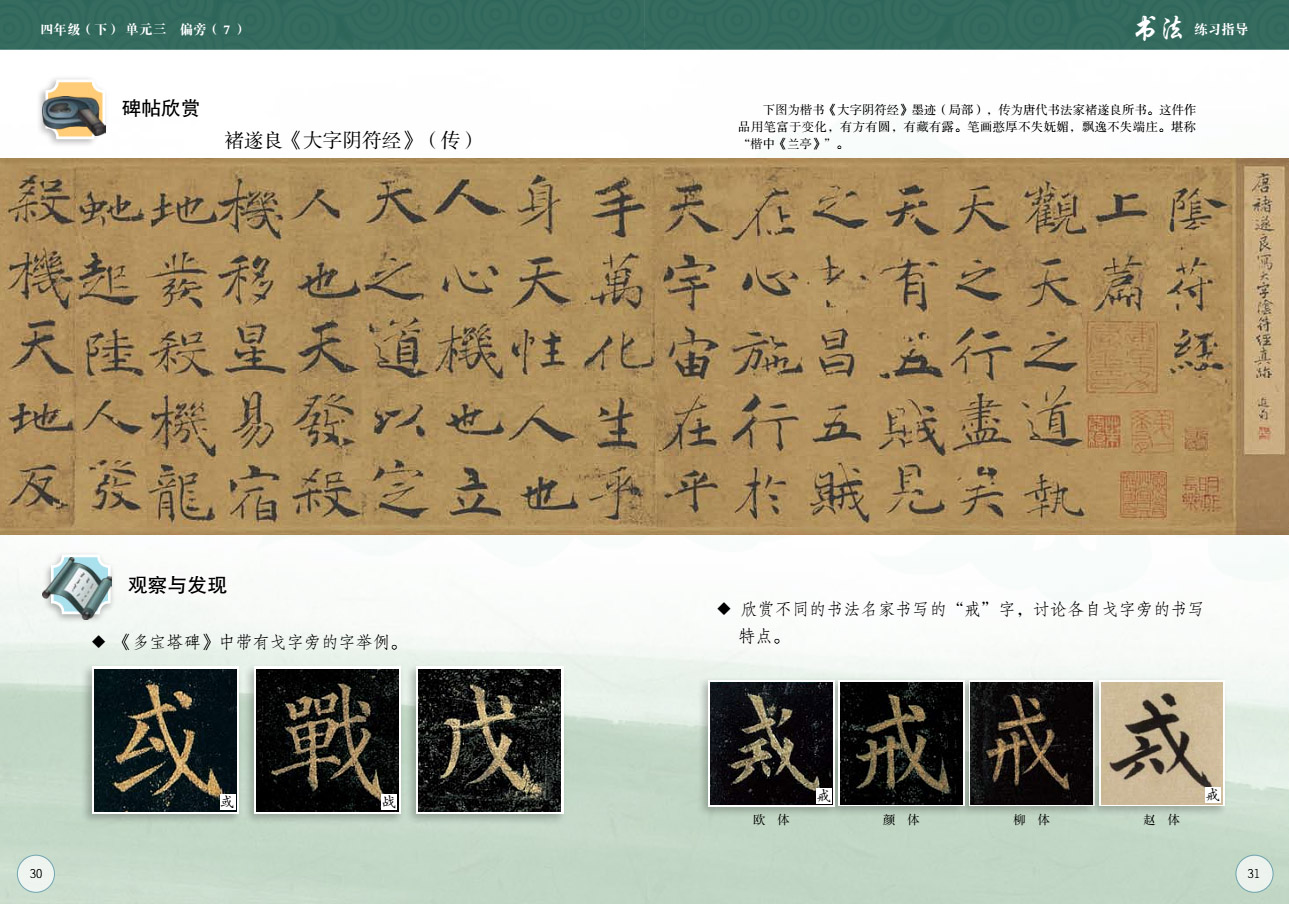 四年级（下） 单元三　偏旁（7）
书法 练习指导
碑帖欣赏
褚遂良《大字阴符经》（传）
下图为楷书《大字阴符经》墨迹（局部），传为唐代书法家褚遂良所书。这件作
品用笔富于变化，有方有圆，有藏有露。笔画憨厚不失妩媚，飘逸不失端庄。堪称
“楷中《兰亭》”。
唐褚遂良寫大字陰符經真跡
陰符經
上篇
觀天之道執
天之行盡矣
天有五賊見
之者昌五賊
在心施行於
天宇宙在乎
手萬化生乎
身天性人也
人心機也立
天之道以定
人也天發殺
機移星易宿
地發殺機龍
虵起陸人發
殺機天地反
观察与发现
◆ 《多宝塔碑》中带有戈字旁的字举例。
或 或
戰 战
戊
◆ 欣赏不同的书法名家书写的“戒”字，讨论各自戈字旁的书写
特点。
戒 戒
戒
戒
戒 戒
欧 体
颜 体
柳 体
赵 体
30
31